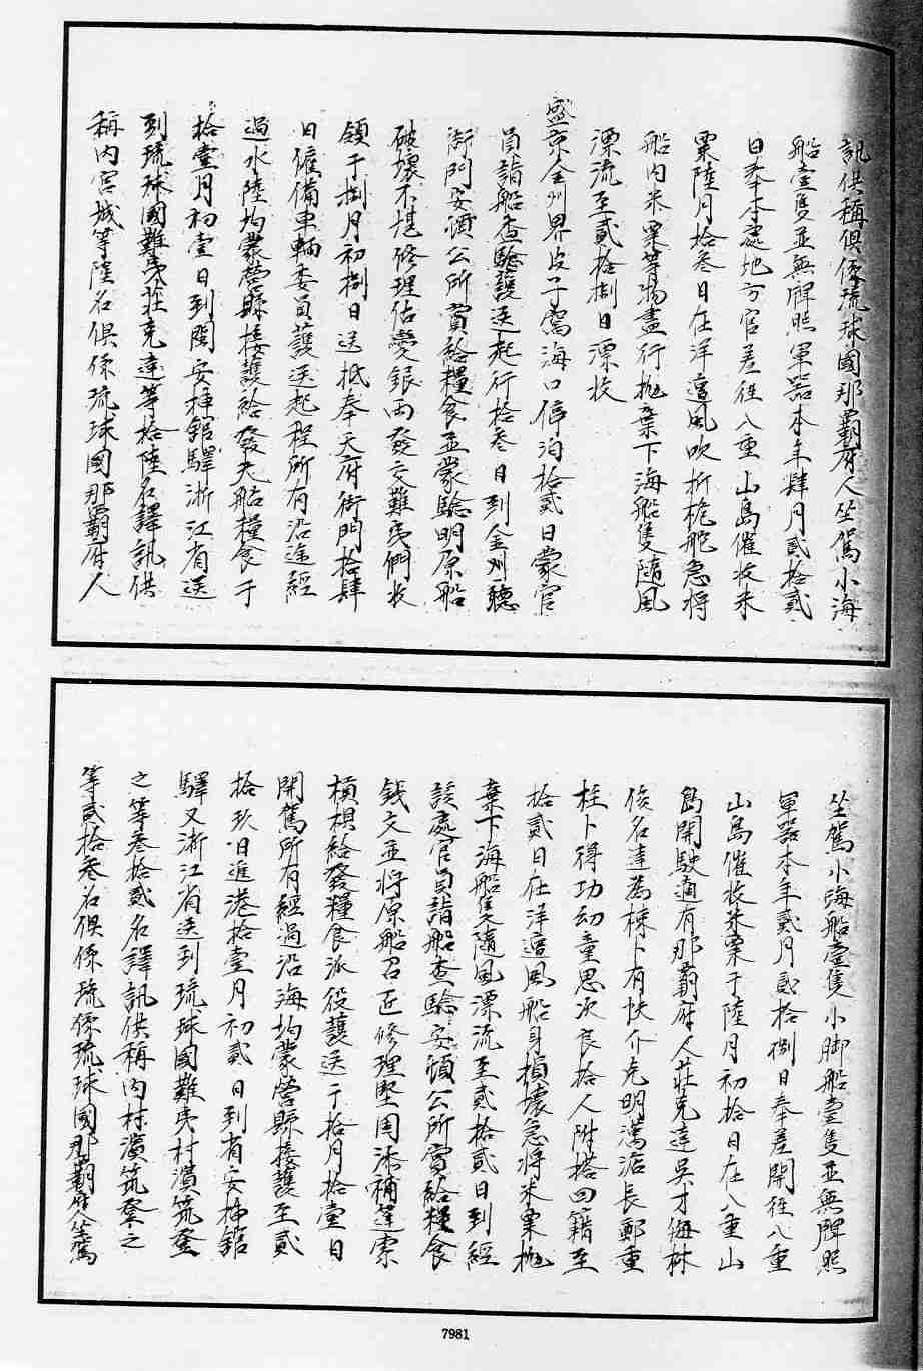 訊供稱俱係琉球國那霸府人坐駕小海
船壹隻並無牌照軍器本年肆月貳拾貳
日奉本處地方官差徃八重山島催收米
粟陸月拾叁日在洋遭風吹折桅舵急將
船內米粟等物盡行拋棄下海船隻隨風
漂流至貳拾捌日漂收
盛京金州界皮子窩海口停泊拾貳日蒙官
員詣船查驗護送起行拾叁日到金州廳
衙門安頓公所賞給糧食並蒙驗明原船
破壞不堪修理估變銀両發交難夷們收
領于捌月初捌日送抵奉天府衙門拾肆
日僱備車輛委員護送起程所有沿途經
過水陸均蒙營縣接護給發夫船糧食于
拾壹月初壹日到閩安揷館驛浙江省送
到琉球國難夷莊克達等拾陸名譯訊供
稱內宮城等陸名俱係琉球國那霸府人
坐駕小海船壹隻小脚船壹隻並無牌照
軍器本年貳月貳拾捌日奉差開徃八重
山島催收米粟于陸月初拾日在八重山
島開駛適有那霸府人莊克達吳才海林
俊名達為棟卜有扶介克明瀉活長鄭重
桂卜得功幼童思次良拾人附搭回籍至
拾貳日在洋遭風船身損壞急將米粟拋
棄下海船隻隨風漂流至貳拾貳日到經
該處官員詣船查驗安頓公所賞給糧食
錢文並將原船召匠修理堅固添補篷索
槓椇給發糧食派役護送于拾月拾壹日
開駕所有經過沿海均蒙營縣接護至貳
拾玖日進港拾壹月初貳日到省安揷館
驛又浙江省送到琉球國難夷村濱筑登
之等叁拾貳名譯訊供稱內村濱筑登之
等貳拾叁名俱係琉係琉球國那霸府人坐駕
7981